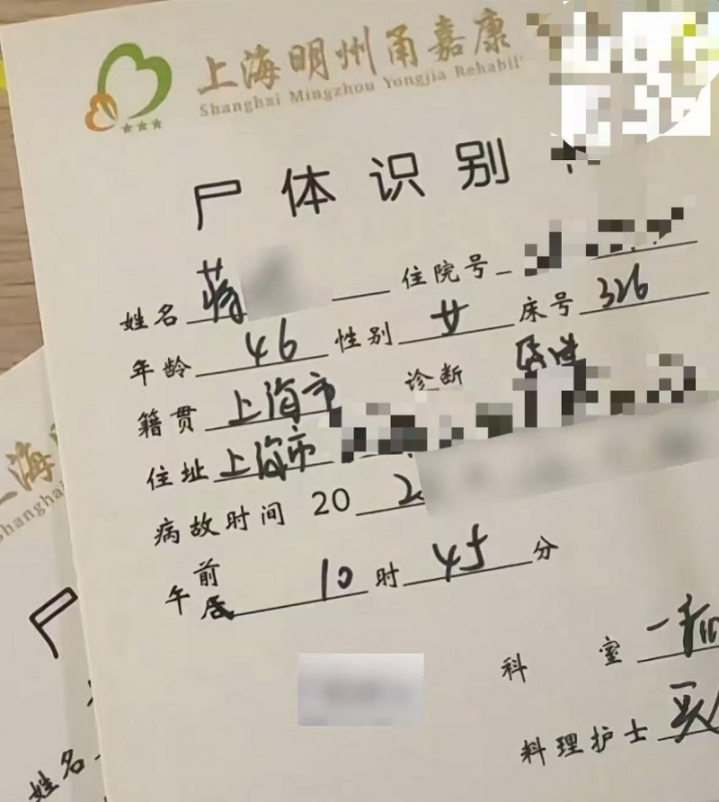 上海明州甬嘉康
Shanghai Mingzhou Yongjia Rehabil
尸体识别
姓名 蒋 住院号
年龄 46 性别 女 床号 326
籍贯 上海市 诊断
住址 上海市
病故时间 20 2
午 前 10 时 45 分
后
科 室 一病
料理护士
上海
Shanghai
尸
姓名